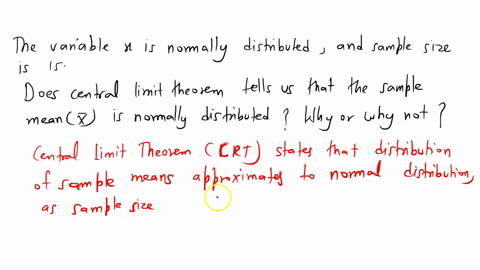 The variable x is normally distributed, and sample size
is 15.
Does central limit theorem tells us that the sample
mean(x̄) is normally distributed? Why or why not?
Central Limit Theorem (CRT) states that distribution
of sample means approximates to normal distribution,
as sample size